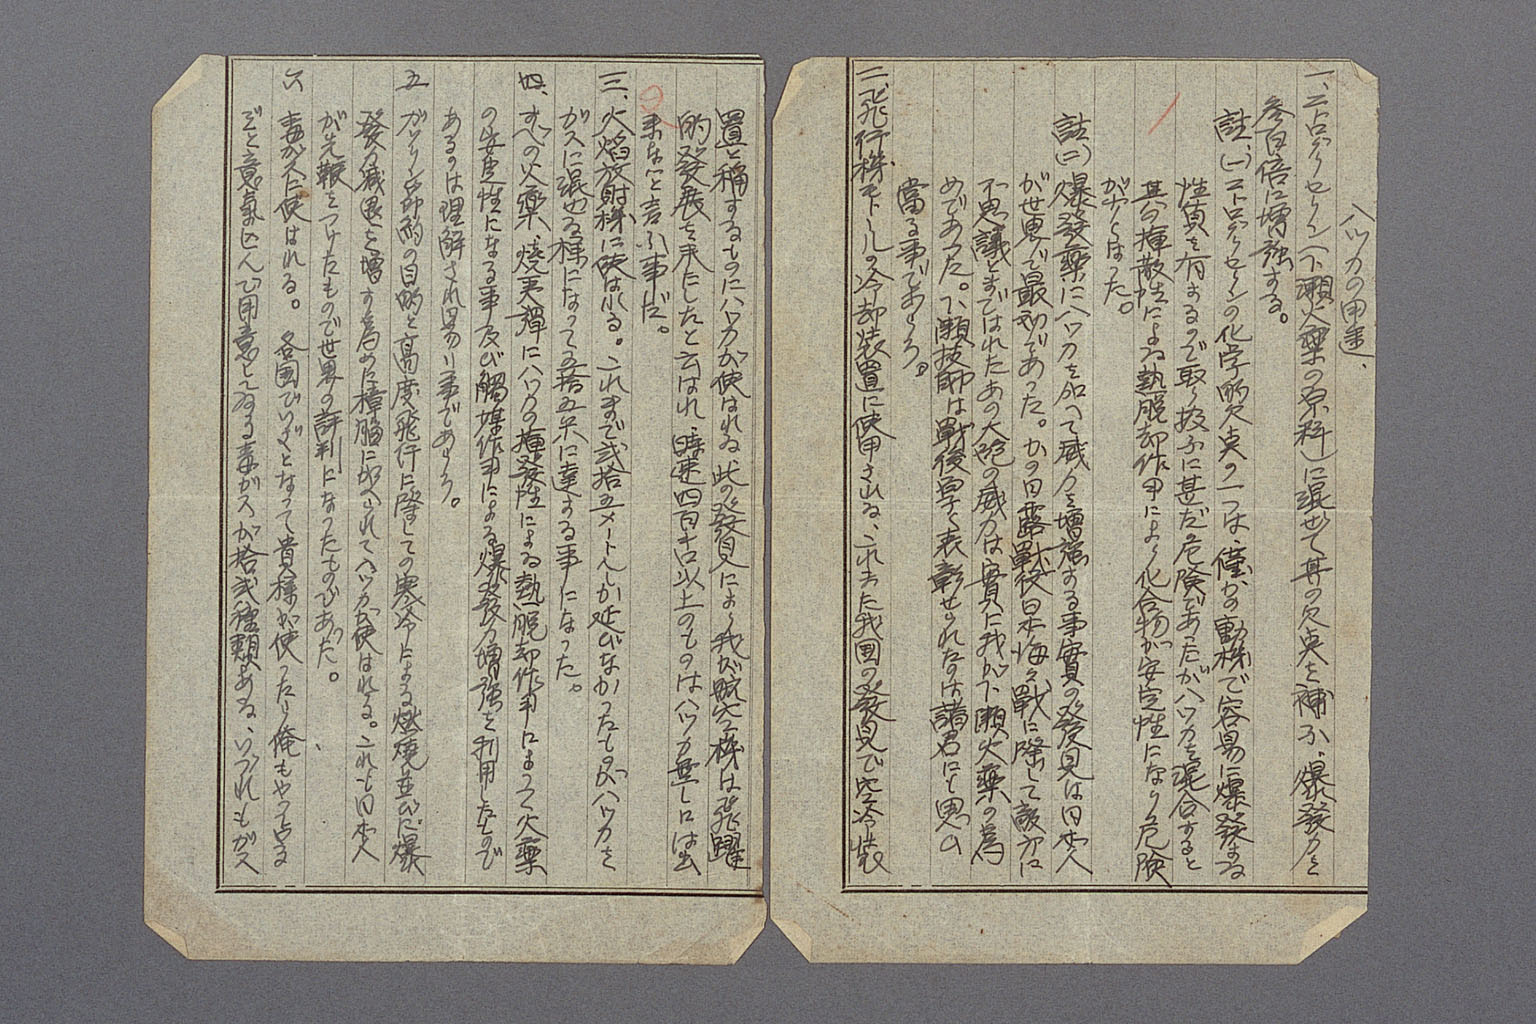 ハッカの用途、
一、ニトログリセリン(下瀬火薬の原料)に混ぜて其の欠点を補ふ、爆発力を
参百倍に増強する。
註、(一)ニトログリセリンの化学的欠点の一つは、僅かの動機で容易に爆発する
性質を有するので取り扱ふに甚だ危険であったがハッカを混合すると
其の揮散性による熱脱却作用により化合物が安定性になり危険
がなくなった。
註(二)爆發薬にハッカを加へて威力を増強する事實の発見は日本人
が世界で最初であった。かの日露戰役日本海々戰に際して敵方に
不思議とまでいはれたあの大砲の威力は實に我が下瀬火薬の為
めであった。下瀬技師は戰後早く表彰せられたのは諸君にも思ひ
當る事であらう。
二、飛行機モートルの冷却装置に使用される、これまた我国の發見で空冷装
置と稱するものにハッカが使はれる、此の發見により我が航空機は飛躍
的發展を来たしたと云はれ、時速四百キロ以上のものはハッカ無しには出
来ないと言ふ事だ。
三、火焰放射機に使はれる。これまで弐拾五メートルしか延びなかったものがハッカを
ガスに混ぜる様になって五拾五米に達する事になった。
四、すべての火薬、燒夷彈にハッカの揮發性による熱脱却作用によって火薬
の安定性になる事及び觸媒作用による爆發力増強を利用したもので
あるのは理解され易い事であらう。
五 ガソリン節約の目的と高度飛行に際しての寒冷による燃燒並びに爆
發力減退を増す為めに樟腦に加へられてハッカが使はれる。これも日本人
が先鞭をつけたもので世界の評判になったものであった。
六 毒ガスに使はれる。各国でいざとなって貴様が使ったら俺もやっぱる
ぞと意氣込んで用意してゐる毒ガスが拾弐種類ある、いづれもガス